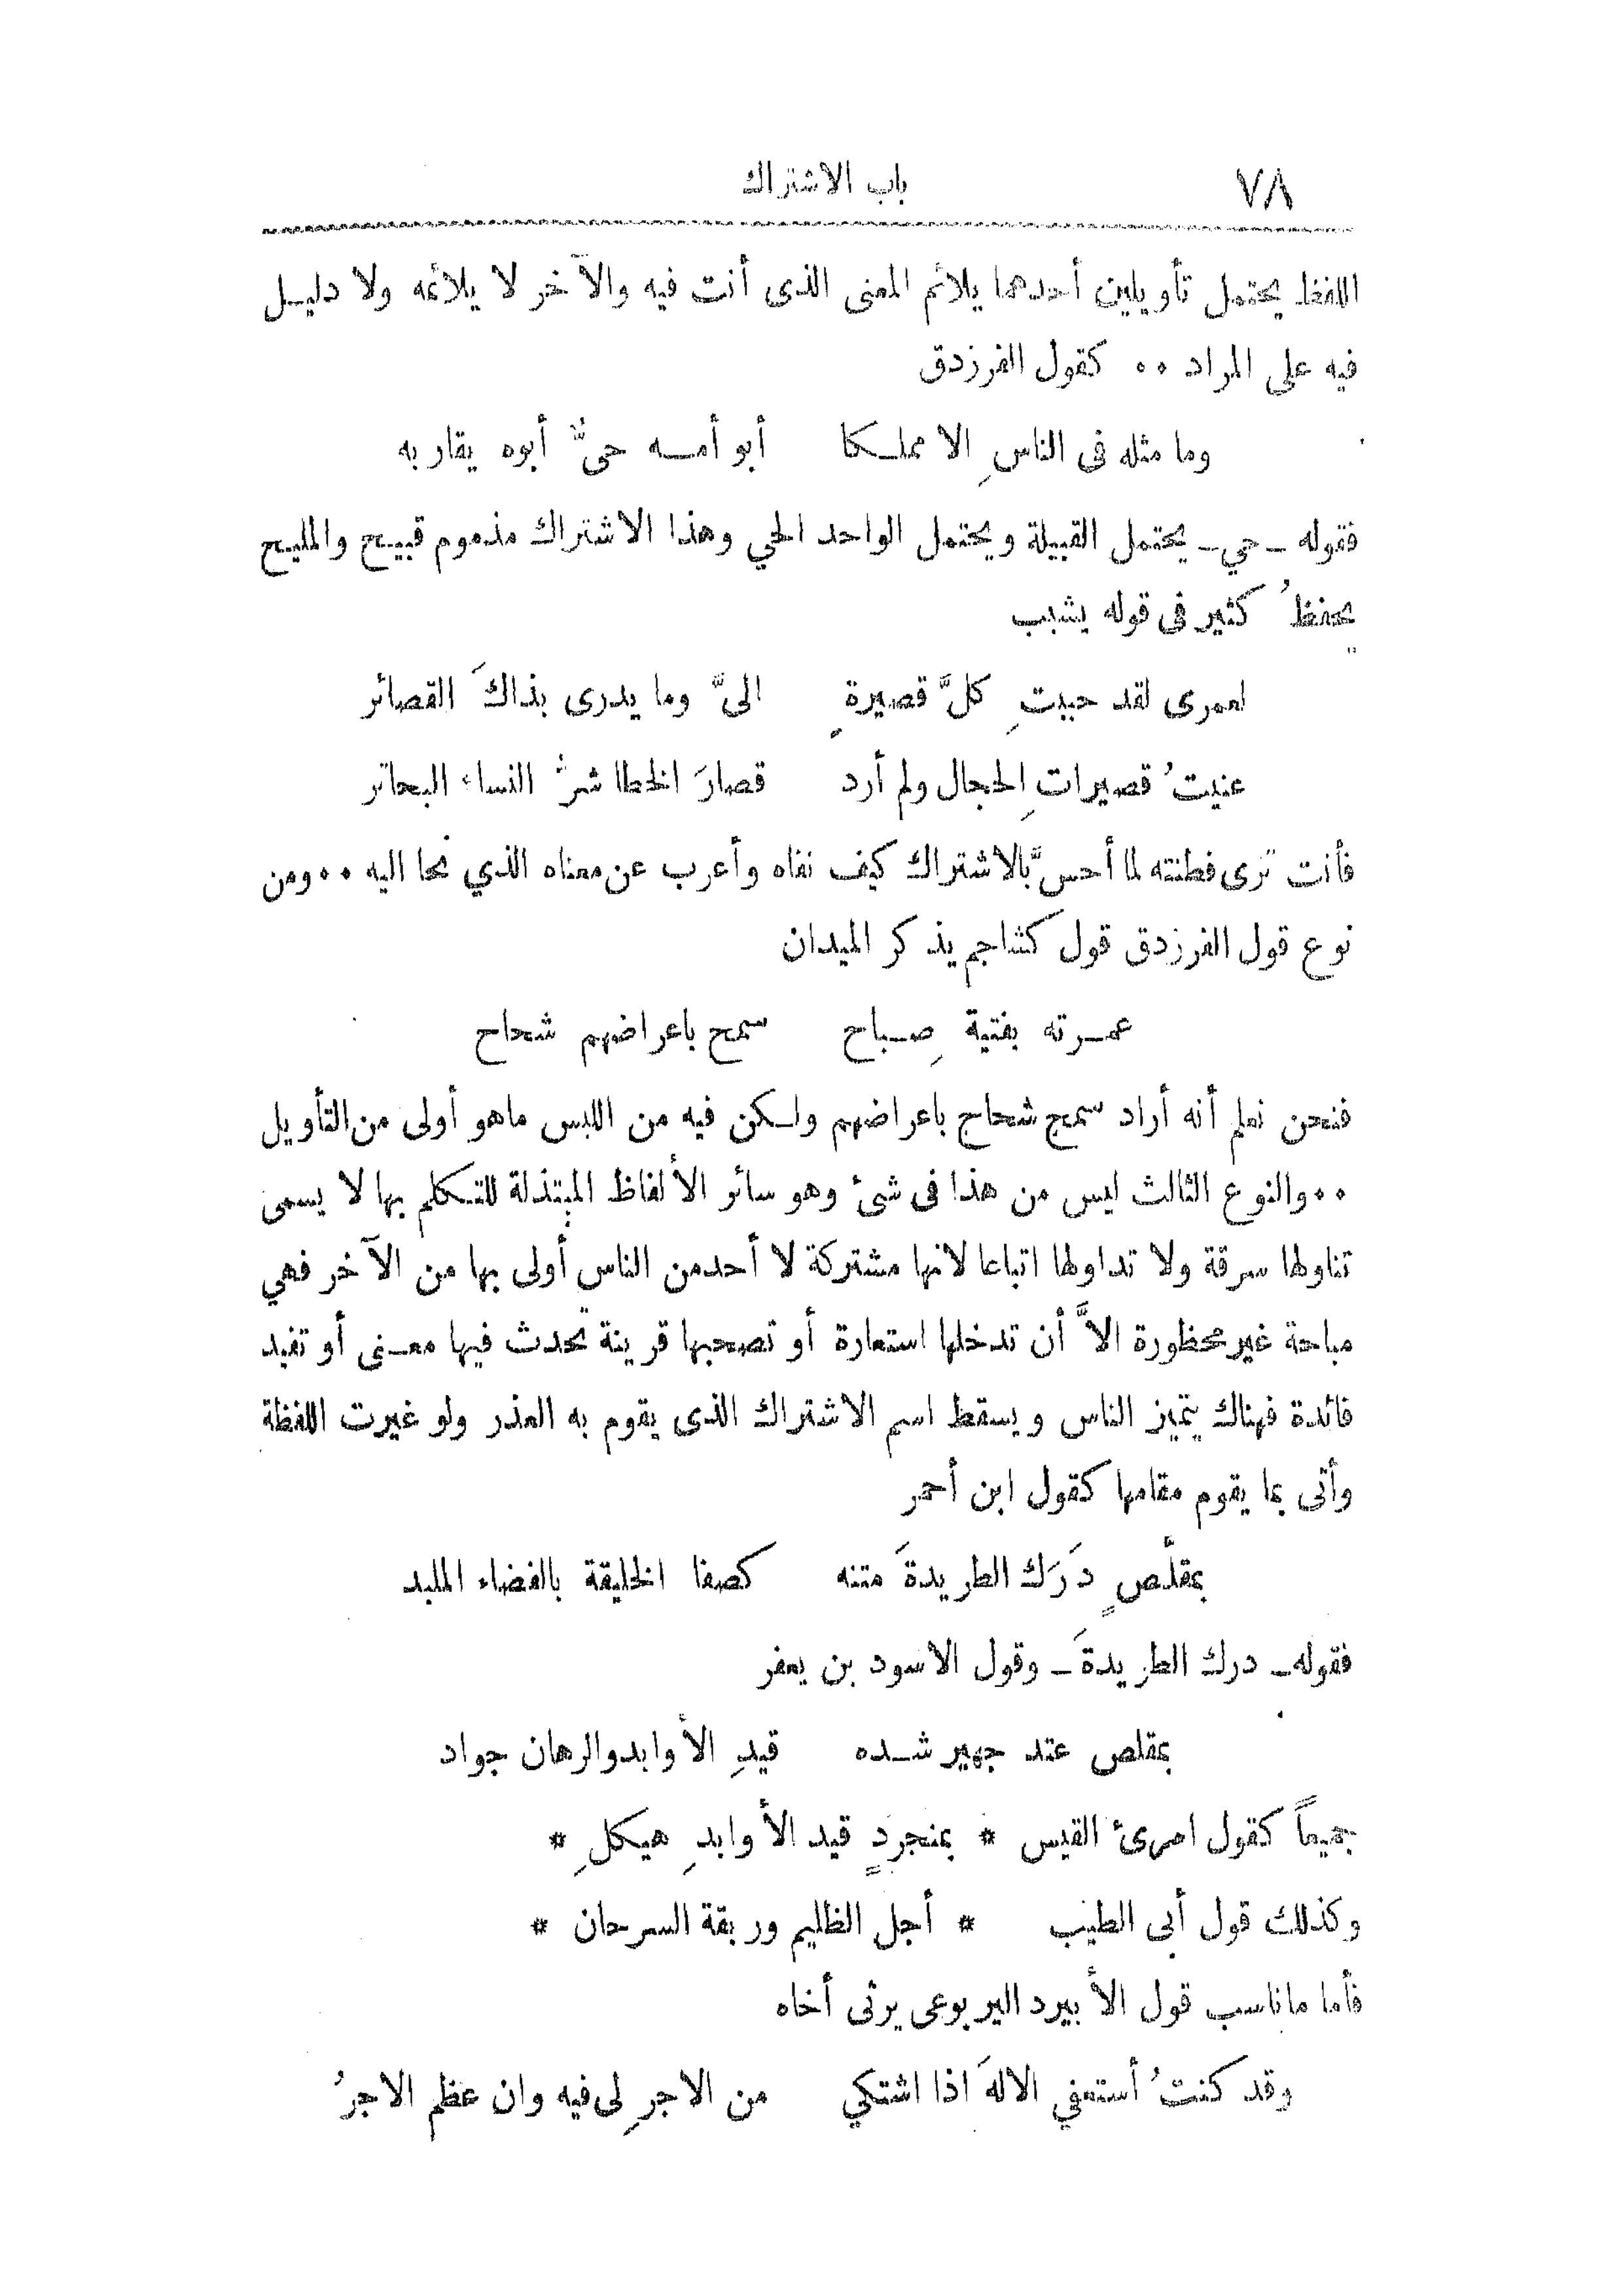 ٧٨ باب الاشتراك
اللفظ يحتمل تأويلين أحدهما يلائم المعنى الذى أنت فيه والآخر لا يلائمه ولا دليل
فيه على المراد ٠٠ كقول الفرزدق
وما مثله فى الناسِ الا مملكا أبو أمه حىٌّ أبوه يقاربه
فقوله ـ حي ـ يحتمل القبيلة ويحتمل الواحد الحي وهذا الاشتراك مذموم قبيح والمليح
يحفظُ كثير فى قوله يشبب
لعمرى لقد حببتِ كلَّ قصيرةٍ الىَّ وما يدرى بذاكَ القصائر
عنيتُ قصيراتِ الحجال ولم أرد قصارَ الخطا شرُّ النساء البحاتر
فأنت ترى فطنته لما أحسَّ بالاشتراك كيف نفاه وأعرب عن معناه الذي نحا اليه ٠٠ ومن
نوع قول الفرزدق قول كشاجم يذكر الميدان
عمرته بفتية صِباح سمح باعراضهم شحاح
فنحن نعلم أنه أراد سمح شحاح باعراضهم ولكن فيه من اللبس ماهو أولى من التأويل
٠٠ والنوع الثالث ليس من هذا فى شئ وهو سائر الألفاظ المبتذلة للتكلم بها لا يسمى
تناولها سرقة ولا تداولها اتباعا لانها مشتركة لا أحد من الناس أولى بها من الآخر فهي
مباحة غير محظورة الاَّ أن تدخلها استعارة أو تصحبها قرينة تحدث فيها معنى أو تفيد
فائدة فهناك يتميز الناس ويسقط اسم الاشتراك الذى يقوم به العذر ولو غيرت اللفظة
وأتى بما يقوم مقامها كقول ابن أحمر
بمقلّصٍ دَرَك الطريدةَ متنه كصفا الخليقة بالفضاء الملبد
فقوله ـ درك الطريدةَ ـ وقول الاسود بن يعفر
بمقلص عتد جهير شده قيدِ الأوابد والرهان جواد
جميعاً كقول امرئ القيس * بمنجردٍ قيد الأوابدِ هيكلِ *
وكذلك قول أبى الطيب * أجل الظليم وربقة السرحان *
فأما ماناسب قول الأبيرد اليربوعى يرثى أخاه
وقد كنتُ أستعفي الالهَ اذا اشتكي من الاجرِ لى فيه وان عظم الاجرُ